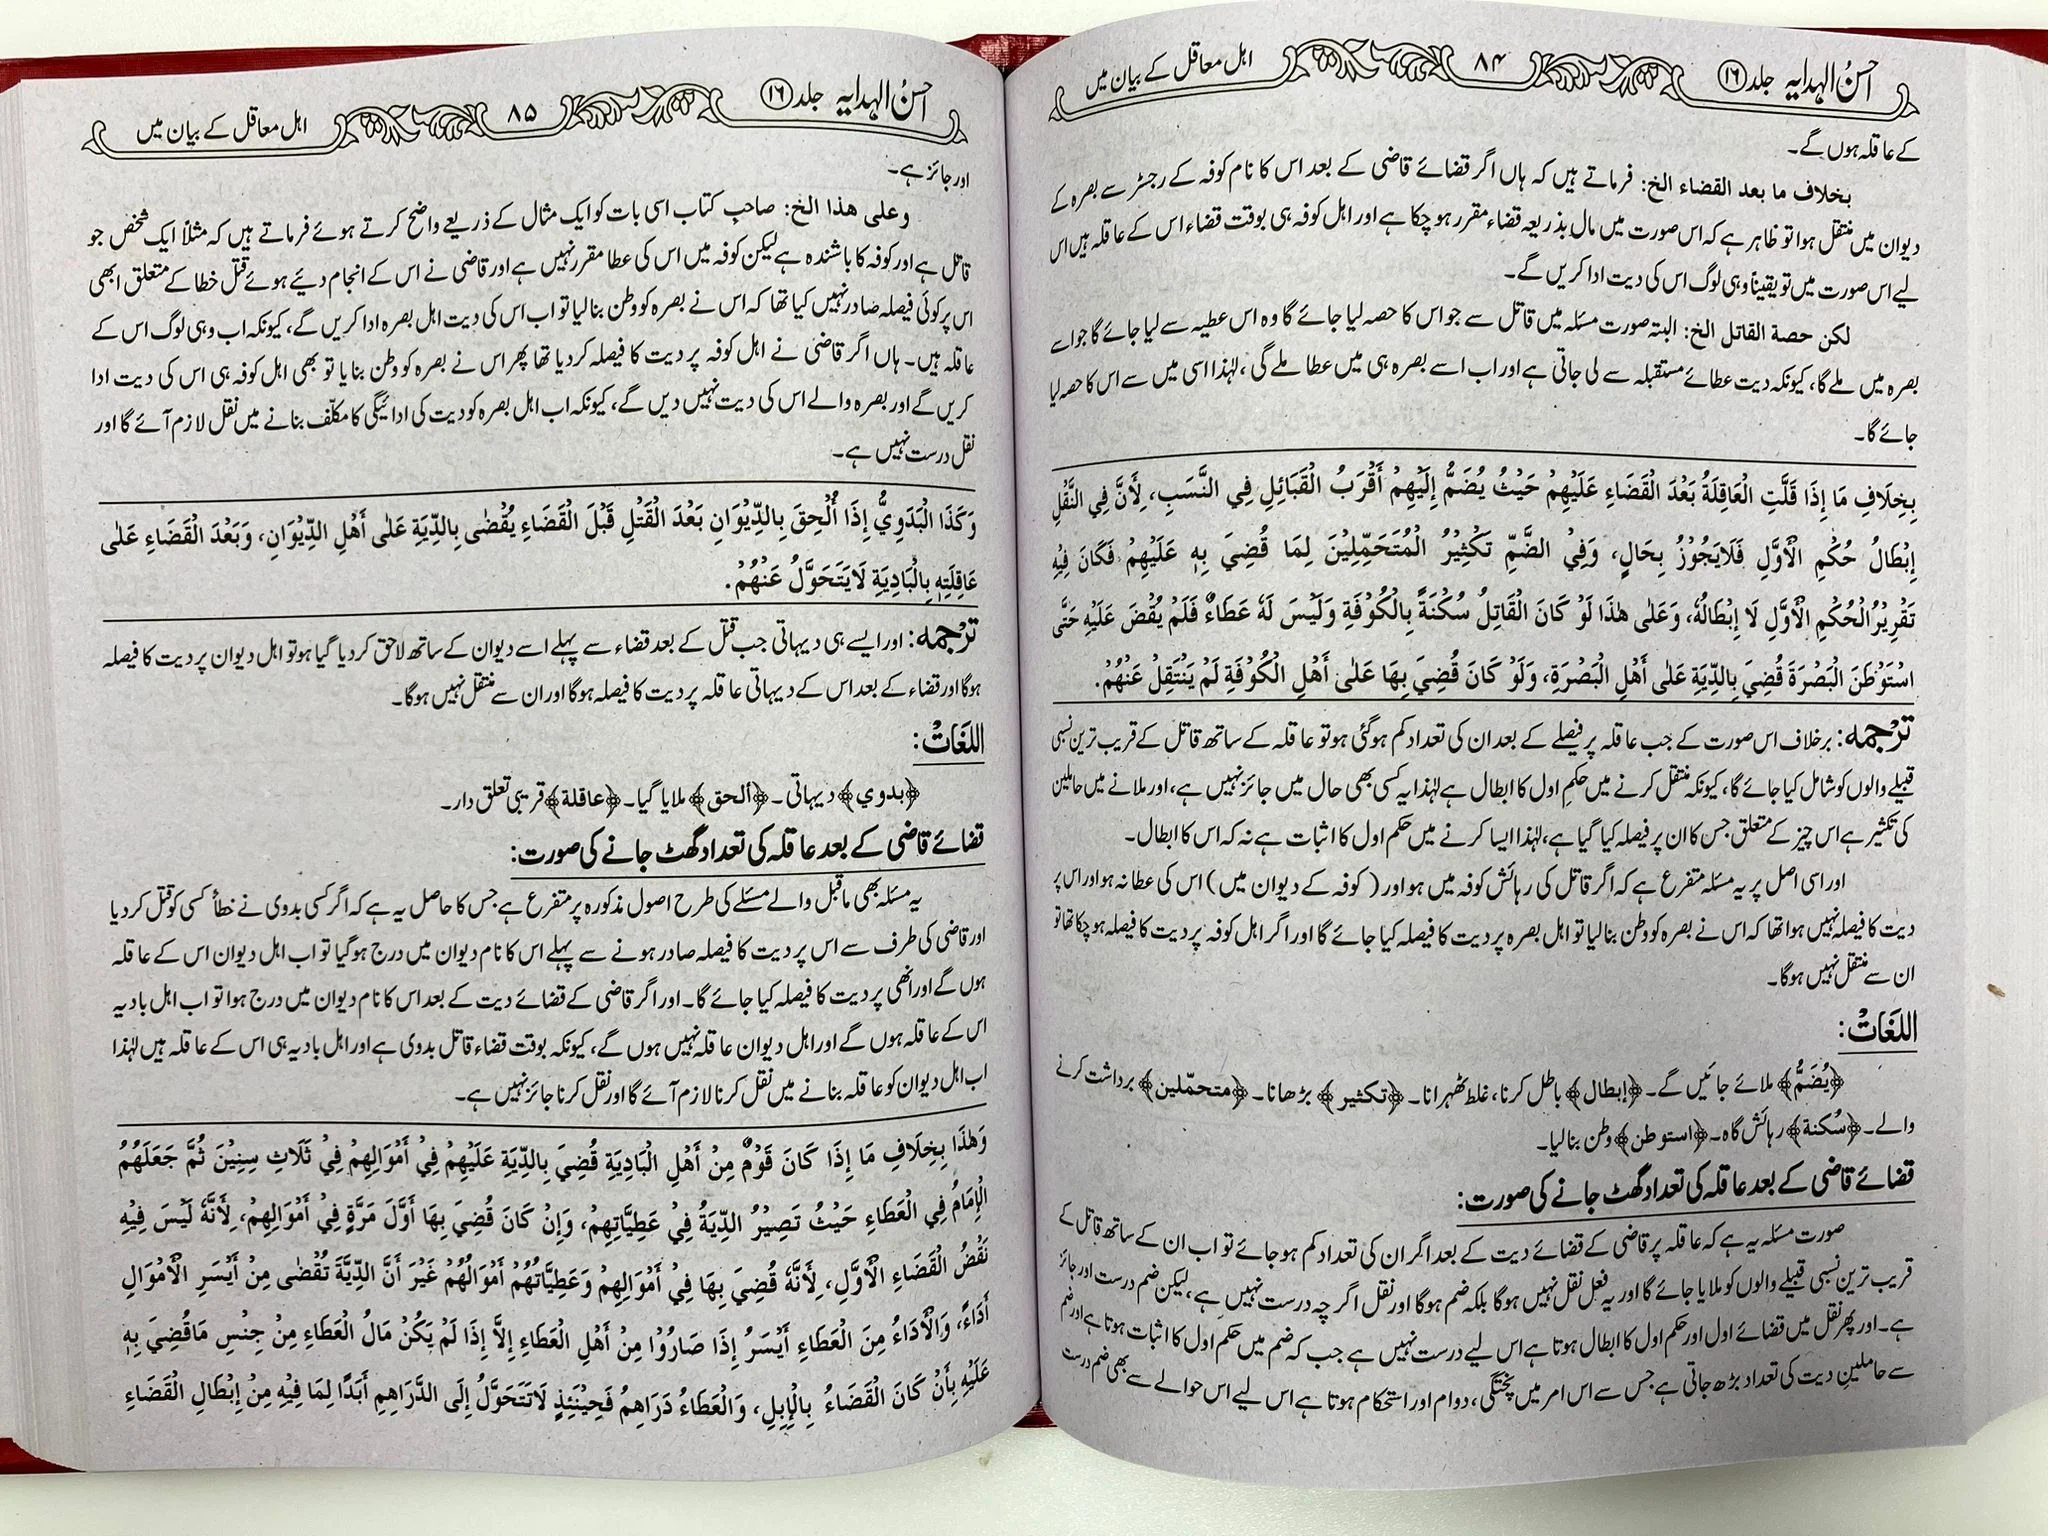 احسن الہدایہ جلد ۱۶ ۸۴ اہل معاقل کے بیان میں
کے عاقلہ ہوں گے۔
بخلاف ما بعد القضاء الخ: فرماتے ہیں کہ ہاں اگر قضائے قاضی کے بعد اس کا نام کوفہ کے رجسٹر سے بصرہ کے
دیوان میں منتقل ہوا تو ظاہر ہے کہ اس صورت میں مال بذریعہ قضاء مقرر ہو چکا ہے اور اہل کوفہ ہی بوقت قضاء اس کے عاقلہ ہیں اس
لیے اس صورت میں تو یقیناً وہی لوگ اس کی دیت ادا کریں گے۔
لکن حصة القاتل الخ: البتہ صورت مسئلہ میں قاتل سے جو اس کا حصہ لیا جائے گا وہ اس عطیہ سے لیا جائے گا جو اسے
بصرہ میں ملے گا، کیونکہ دیت عطائے مستقبلہ سے لی جاتی ہے اور اب اسے بصرہ ہی میں عطا ملے گی، لہٰذا اسی میں سے اس کا حصہ لیا
جائے گا۔
بِخِلَافِ مَا إِذَا قَلَّتِ الْعَاقِلَةُ بَعْدَ الْقَضَاءِ عَلَيْهِمْ حَيْثُ يُضَمُّ إِلَيْهِمْ أَقْرَبُ الْقَبَائِلِ فِي النَّسَبِ، لِأَنَّ فِي النَّقْلِ
إِبْطَالُ حُكْمِ الْأَوَّلِ فَلَايَجُوْزُ بِحَالٍ، وَفِيْ الضَّمِّ تَكْثِيْرُ الْمُتَحَمِّلِيْنَ لِمَا قُضِيَ بِهٖ عَلَيْهِمْ فَكَانَ فِيْهِ
تَقْرِيْرُ الْحُكْمِ الْأَوَّلِ لَا إِبْطَالُهُ، وَعَلٰى هٰذَا لَوْ كَانَ الْقَاتِلُ سُكْنَةً بِالْكُوْفَةِ وَلَيْسَ لَهٗ عَطَاءٌ فَلَمْ يُقْضَ عَلَيْهِ حَتّٰى
اسْتَوْطَنَ الْبَصْرَةَ قُضِيَ بِالدِّيَةِ عَلٰى أَهْلِ الْبَصْرَةِ، وَلَوْ كَانَ قُضِيَ بِهَا عَلٰى أَهْلِ الْكُوْفَةِ لَمْ يَنْتَقِلْ عَنْهُمْ.
ترجمہ: برخلاف اس صورت کے جب عاقلہ پر فیصلے کے بعد ان کی تعداد کم ہوگئی ہو تو عاقلہ کے ساتھ قاتل کے قریب ترین نسبی
قبیلے والوں کو شامل کیا جائے گا، کیونکہ منتقل کرنے میں حکم اول کا ابطال ہے لہٰذا یہ کسی بھی حال میں جائز نہیں ہے، اور ملانے میں حاملین
کی تکثیر ہے اس چیز کے متعلق جس کا ان پر فیصلہ کیا گیا ہے، لہٰذا ایسا کرنے میں حکم اول کا اثبات ہے نہ کہ اس کا ابطال۔
اور اسی اصل پر یہ مسئلہ متفرع ہے کہ اگر قاتل کی رہائش کوفہ میں ہو اور (کوفہ کے دیوان میں) اس کی عطا نہ ہو اور اس پر
دیت کا فیصلہ نہیں ہوا تھا کہ اس نے بصرہ کو وطن بنالیا تو اہل بصرہ پر دیت کا فیصلہ کیا جائے گا اور اگر اہل کوفہ پر دیت کا فیصلہ ہو چکا تھا تو
ان سے منتقل نہیں ہوگا۔
اللغاتُ:
﴿یُضَمُّ﴾ ملائے جائیں گے۔ ﴿إبطال﴾ باطل کرنا، غلط ٹھہرانا۔ ﴿تکثیر﴾ بڑھانا۔ ﴿متحمّلین﴾ برداشت کرنے
والے۔ ﴿سُکنة﴾ رہائش گاہ۔ ﴿استوطن﴾ وطن بنالیا۔
قضائے قاضی کے بعد عاقلہ کی تعداد گھٹ جانے کی صورت:
صورت مسئلہ یہ ہے کہ عاقلہ پر قاضی کے قضائے دیت کے بعد اگر ان کی تعداد کم ہو جائے تو اب ان کے ساتھ قاتل کے
قریب ترین نسبی قبیلے والوں کو ملایا جائے گا اور یہ فعل نقل نہیں ہوگا بلکہ ضم ہوگا اور نقل اگرچہ درست نہیں ہے، لیکن ضم درست اور جائز
ہے۔ اور پھر نقل میں قضائے اول اور حکم اول کا ابطال ہوتا ہے اس لیے درست نہیں ہے جب کہ ضم میں حکم اول کا اثبات ہوتا ہے اور ضم
سے حاملین دیت کی تعداد بڑھ جاتی ہے جس سے اس امر میں پختگی، دوام اور استحکام ہوتا ہے اس لیے اس حوالے سے بھی ضم درست
احسن الہدایہ جلد ۱۶ ۸۵ اہل معاقل کے بیان میں
اور جائز ہے۔
وعلی هذا الخ: صاحب کتاب اسی بات کو ایک مثال کے ذریعے واضح کرتے ہوئے فرماتے ہیں کہ مثلاً ایک شخص جو
قاتل ہے اور کوفہ کا باشندہ ہے لیکن کوفہ میں اس کی عطا مقرر نہیں ہے اور قاضی نے اس کے انجام دیئے ہوئے قتل خطا کے متعلق ابھی
اس پر کوئی فیصلہ صادر نہیں کیا تھا کہ اس نے بصرہ کو وطن بنالیا تو اب اس کی دیت اہل بصرہ ادا کریں گے، کیونکہ اب وہی لوگ اس کے
عاقلہ ہیں۔ ہاں اگر قاضی نے اہل کوفہ پر دیت کا فیصلہ کر دیا تھا پھر اس نے بصرہ کو وطن بنایا تو بھی اہل کوفہ ہی اس کی دیت ادا
کریں گے اور بصرہ والے اس کی دیت نہیں دیں گے، کیونکہ اب اہل بصرہ کو دیت کی ادائیگی کا مکلّف بنانے میں نقل لازم آئے گا اور
نقل درست نہیں ہے۔
وَكَذَا الْبَدَوِيُّ إِذَا أُلْحِقَ بِالدِّيْوَانِ بَعْدَ الْقَتْلِ قَبْلَ الْقَضَاءِ يُقْضٰى بِالدِّيَةِ عَلٰى أَهْلِ الدِّيْوَانِ، وَبَعْدَ الْقَضَاءِ عَلٰى
عَاقِلَتِهٖ بِالْبَادِيَةِ لَايَتَحَوَّلُ عَنْهُمْ.
ترجمہ: اور ایسے ہی دیہاتی جب قتل کے بعد قضاء سے پہلے اسے دیوان کے ساتھ لاحق کر دیا گیا ہو تو اہل دیوان پر دیت کا فیصلہ
ہوگا اور قضاء کے بعد اس کے دیہاتی عاقلہ پر دیت کا فیصلہ ہوگا اور ان سے منتقل نہیں ہوگا۔
اللغاتُ:
﴿بدوی﴾ دیہاتی۔ ﴿ألحق﴾ ملایا گیا۔ ﴿عاقلة﴾ قریبی تعلق دار۔
قضائے قاضی کے بعد عاقلہ کی تعداد گھٹ جانے کی صورت:
یہ مسئلہ بھی ماقبل والے مسئلے کی طرح اصول مذکورہ پر متفرع ہے جس کا حاصل یہ ہے کہ اگر کسی بدوی نے خطأً کسی کو قتل کر دیا
اور قاضی کی طرف سے اس پر دیت کا فیصلہ صادر ہونے سے پہلے اس کا نام دیوان میں درج ہوگیا تو اب اہل دیوان اس کے عاقلہ
ہوں گے اور انھی پر دیت کا فیصلہ کیا جائے گا۔ اور اگر قاضی کے قضائے دیت کے بعد اس کا نام دیوان میں درج ہوا تو اب اہل بادیہ
اس کے عاقلہ ہوں گے اور اہل دیوان عاقلہ نہیں ہوں گے، کیونکہ بوقت قضاء قاتل بدوی ہے اور اہل بادیہ ہی اس کے عاقلہ ہیں لہٰذا
اب اہل دیوان کو عاقلہ بنانے میں نقل کرنا لازم آئے گا اور نقل کرنا جائز نہیں ہے۔
وَهٰذَا بِخِلَافِ مَا إِذَا كَانَ قَوْمٌ مِنْ أَهْلِ الْبَادِيَةِ قُضِيَ بِالدِّيَةِ عَلَيْهِمْ فِيْ أَمْوَالِهِمْ فِيْ ثَلَاثِ سِنِيْنَ ثُمَّ جَعَلَهُمُ
الْإِمَامُ فِي الْعَطَاءِ حَيْثُ تَصِيْرُ الدِّيَةُ فِيْ عَطِيَّاتِهِمْ، وَإِنْ كَانَ قُضِيَ بِهَا أَوَّلَ مَرَّةٍ فِيْ أَمْوَالِهِمْ، لِأَنَّهٗ لَيْسَ فِيْهِ
نَقْضُ الْقَضَاءِ الْأَوَّلِ، لِأَنَّهٗ قُضِيَ بِهَا فِيْ أَمْوَالِهِمْ وَعَطِيَّاتُهُمْ أَمْوَالُهُمْ غَيْرَ أَنَّ الدِّيَّةَ تُقْضٰى مِنْ أَيْسَرِ الْأَمْوَالِ
أَدَاءً، وَالْأَدَاءُ مِنَ الْعَطَاءِ أَيْسَرُ إِذَا صَارُوْا مِنْ أَهْلِ الْعَطَاءِ إِلَّا إِذَا لَمْ يَكُنْ مَالُ الْعَطَاءِ مِنْ جِنْسِ مَاقُضِيَ بِهٖ
عَلَيْهِ بِأَنْ كَانَ الْقَضَاءُ بِالْإِبِلِ، وَالْعَطَاءُ دَرَاهِمُ فَحِيْنَئِذٍ لَاتَتَحَوَّلُ إِلَى الدَّرَاهِمِ أَبَدًا لِمَا فِيْهِ مِنْ إِبْطَالِ الْقَضَاءِ